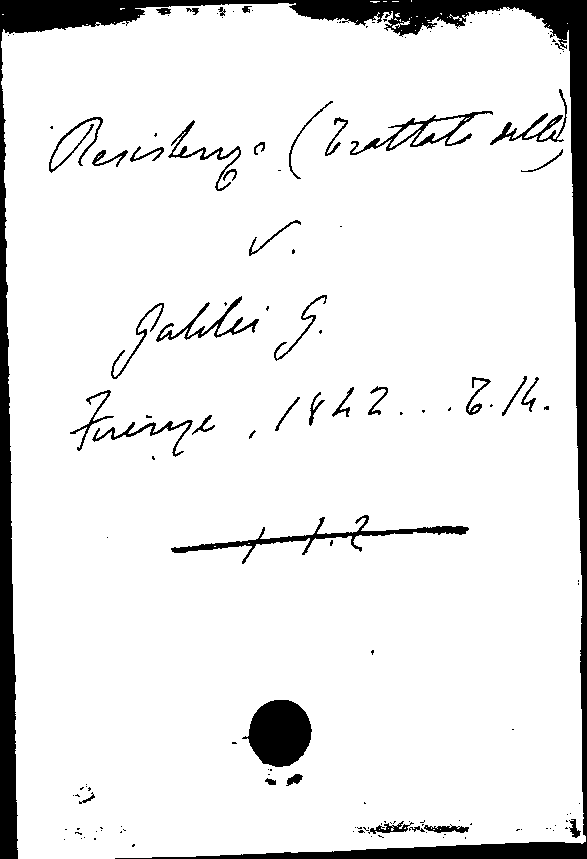 Resistenze (Trattato delle)
v.
Galilei G.
Firenze, 1842... T. 14.
1 1.2